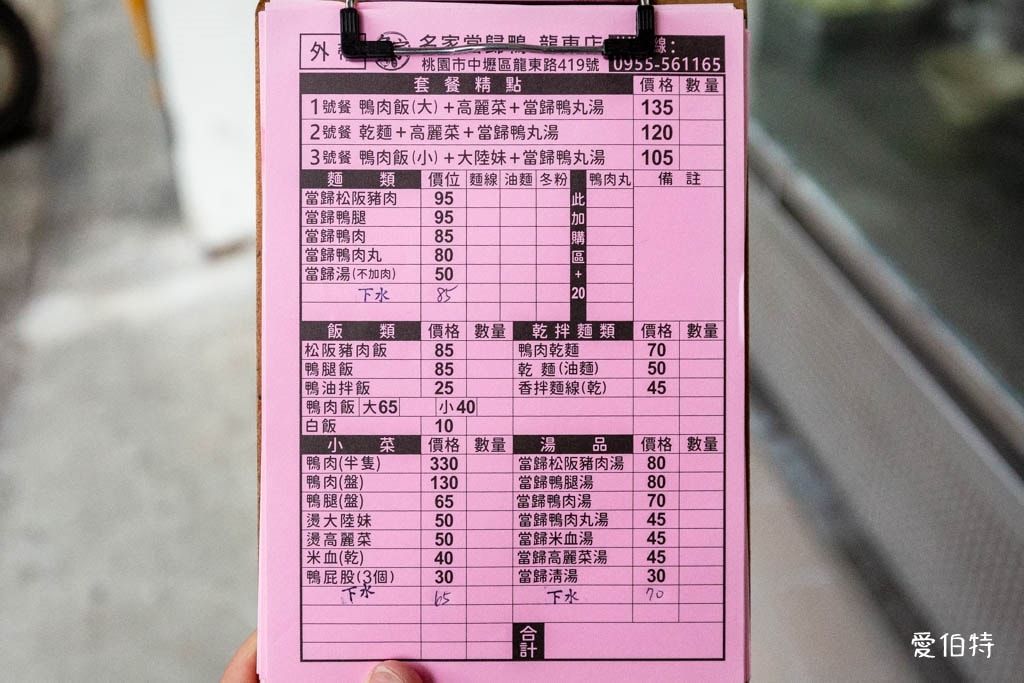 外
名家當歸鴨 龍東店 線:
桃園市中壢區龍東路419號 0955-561165
套餐精點 價格 數量
1號餐 鴨肉飯(大)+高麗菜+當歸鴨丸湯 135
2號餐 乾麵+高麗菜+當歸鴨丸湯 120
3號餐 鴨肉飯(小)+大陸妹+當歸鴨丸湯 105
麵類 價位 麵線 油麵 冬粉 此加購區+20 鴨肉丸 備註
當歸松阪豬肉 95
當歸鴨腿 95
當歸鴨肉 85
當歸鴨肉丸 80
當歸湯(不加肉) 50
下水 85
飯類 價格 數量 乾拌麵類 價格 數量
松阪豬肉飯 85 鴨肉乾麵 70
鴨腿飯 85 乾麵(油麵) 50
鴨油拌飯 25 香拌麵線(乾) 45
鴨肉飯 大65 小40
白飯 10
小菜 價格 數量 湯品 價格 數量
鴨肉(半隻) 330 當歸松阪豬肉湯 80
鴨肉(盤) 130 當歸鴨腿湯 80
鴨腿(盤) 65 當歸鴨肉湯 70
燙大陸妹 50 當歸鴨肉丸湯 45
燙高麗菜 50 當歸米血湯 45
米血(乾) 40 當歸高麗菜湯 45
鴨屁股(3個) 30 當歸清湯 30
下水 65 下水 70
合計
愛伯特